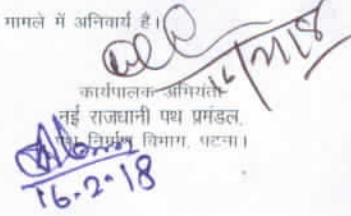 मामले में अनिवार्य है।
कार्यपालक अभियंता
नई राजधानी पथ प्रमंडल,
पथ निर्माण विभाग, पटना।
16.2.18